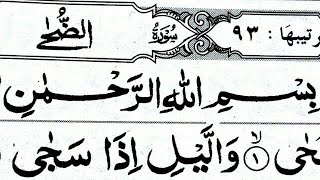 رتيبها: ٩٣ سُورَةُ الضُّحٰى
بِسْمِ اللّٰهِ الرَّحْمٰنِ
حٰى ۙ﴿١﴾ وَالَّيْلِ اِذَا سَجٰى